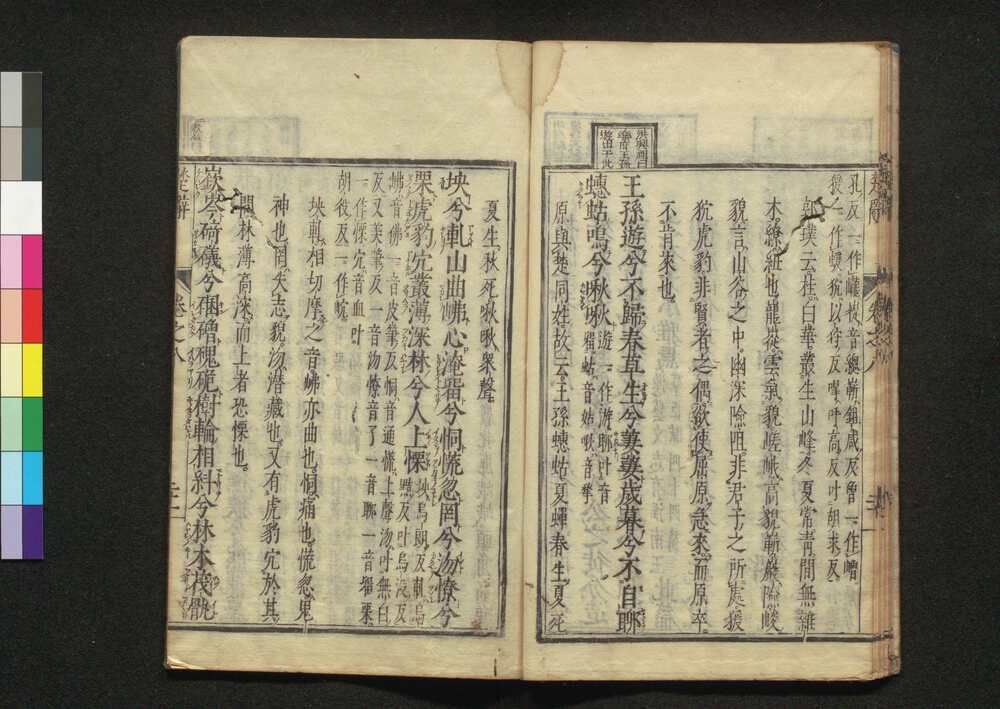 孔反一作巃嵸音緫嶄鉏咸反曾一作嶒
猨一作蝯狖以狩反嘷呼高反叶胡求反
郭璞云桂白華叢生山峰冬夏常青間無雜
木繚紐也巃嵸雲氣貌嵯峨高貌嶄巖險峻
貌言山谷之中幽深險阻非君子之所處猨
狖虎豹非賢者之偶欲使屈原急來而原卒
不肯來也
王孫遊兮不歸春草生兮萋萋歲暮兮不自聊
蟪蛄鳴兮啾啾遊一作游聊叶音
蟪音惠蛄音姑啾音揫
原與楚同姓故云王孫蟪蛄夏蟬春生夏死
夏生秋死啾啾衆聲
坱兮軋山曲岪心淹留兮恫慌忽罔兮沕憭兮
栗虎豹穴叢薄深林兮人上慄坱烏朗反軋烏
黠反叶烏没反
岪音佛一音皮筆反恫音通慌上聲沕叶無白
反又美筆反一音勿憭音了一音聊一音留栗
一作慄穴音血叶
胡役反一作岤
坱軋相切摩之音岪亦曲也恫痛也慌忽鬼
神也罔失志貌沕潛藏也又有虎豹穴於其
間林薄高深而上者恐慄也
嶔岑碕礒兮硱磳磈硊樹輪相糾兮林木茷骫
楚辭
卷之八